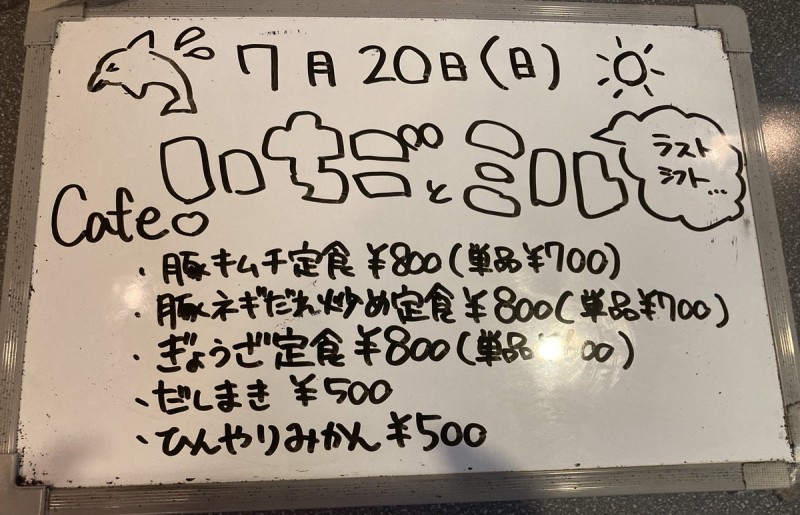 7月20日(日)
とミル
ラスト
シフト...
Cafe♡
・豚キムチ定食 ¥800(単品¥700)
・豚ネギだれ炒め定食 ¥800(単品¥700)
・ぎょうざ定食 ¥800(単品 00)
・だしまき ¥500
・ひんやりみかん ¥500